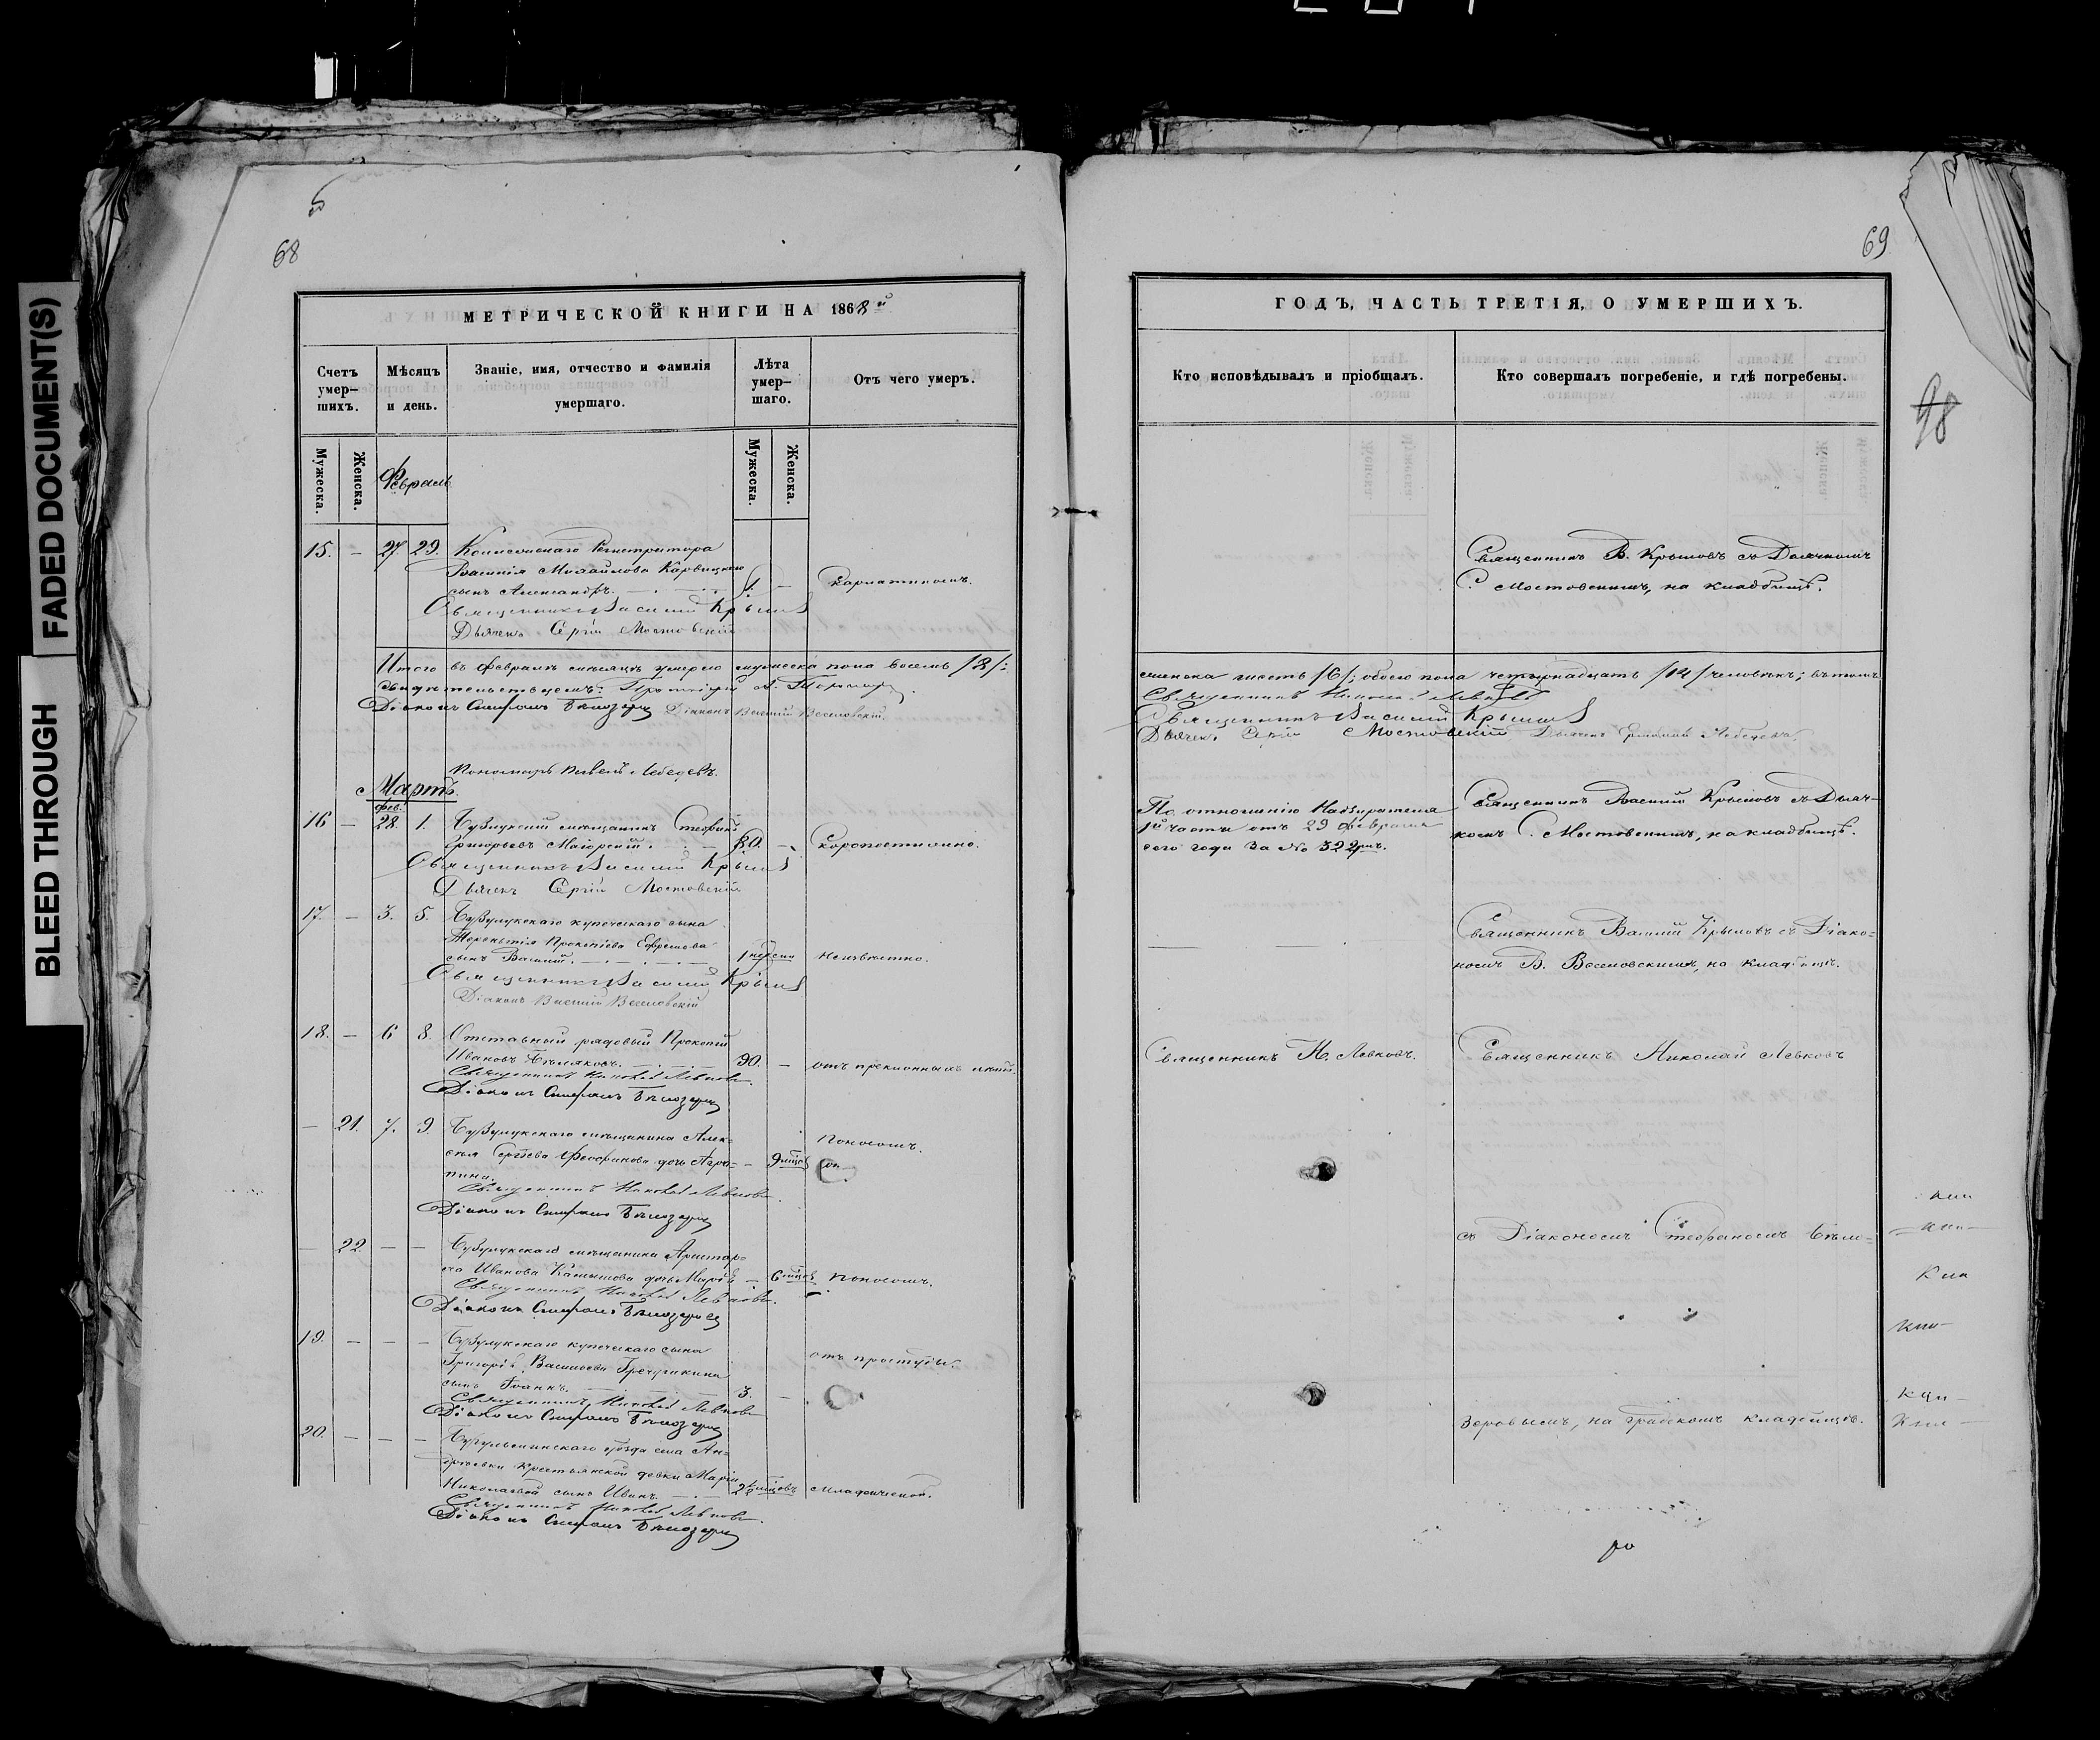 FADED DOCUMENT(S)
BLEED THROUGH
68
МЕТРИЧЕСКОЙ КНИГИ НА 1868й
Счетъ умер-шихъ.
Мѣсяцъ и день.
Званіе, имя, отчество и фамилія умершаго.
Лѣта умер-шаго.
Отъ чего умеръ.
Мужеска.
Женска.
Мужеска.
Женска.
Февраль
15. — 27. 29. Коллежскаго Регистратора
Василія Михайлова
сынъ Александръ. 1. — Скарлатиномъ.
Священникъ Василій Крыловъ
Дьячекъ Сергій Мостовскій
Итого въ Февралѣ мѣсяцѣ умерло мужеска пола восемь /8/;
свидѣтельствуемъ: Протоіерей А.
Діаконъ Стефанъ Бѣлозеровъ Діаконъ Василій Веселовскій.
Пономарь Павелъ Лебедевъ.
Мартъ.
фев.
16 — 28. 1. Бузулукскій мѣщанинъ Стефанъ
Григорьевъ Маіорскій. 80. — Скоропостижно.
Священникъ Василій Крыловъ
Дьячекъ Сергій Мостовскій
17. — 3. 5. Бузулукскаго купеческаго сына
Терентія Прокопіева Ефремова
сынъ Василій. 1 недѣли неизвѣстно.
Священникъ Василій Крыловъ
Діаконъ Василій Веселовскій
18. — 6 8. Отставный рядовый Прокопій
Ивановъ Бѣляковъ. 90. — отъ преклонныхъ лѣтъ.
Священникъ Николай Левковъ
Діаконъ Стефанъ Бѣлозеровъ
— 21. 7. 9. Бузулукскаго мѣщанина Алек-
сѣя Сергѣева Феофанова дочь Агри- — 9 мѣсц. Поносомъ.
пина.
Священникъ Николай Левковъ.
Діаконъ Стефанъ Бѣлозеровъ
— 22. — — Бузулукскаго мѣщанина Аристар-
ха Иванова Камышова дочь Марія — 6 мѣсц. Поносомъ.
Священникъ Николай Левковъ.
Діаконъ Стефанъ Бѣлозеровъ
19. — — — Бузулукскаго купеческаго сына
Григорія Васильева Гречушкина отъ простуды.
сынъ Іоаннъ. 3. —
Священникъ Николай Левковъ
Діаконъ Стефанъ Бѣлозеровъ
20. — — — Бугульминскаго уѣзда села Ан-
крестьянской дѣвки Маріи
Николаевой сынъ Иванъ. мѣсцовъ Младенческой.
Священникъ Николай Левковъ.
Діаконъ Стефанъ Бѣлозеровъ
69
98
ГОДЪ, ЧАСТЬ ТРЕТІЯ, О УМЕРШИХЪ.
Кто исповѣдывалъ и пріобщалъ.
Кто совершалъ погребеніе, и гдѣ погребены.
Священникъ В. Крыловъ съ Дьячкомъ
С. Мостовскимъ, на кладбищѣ.
женска шесть /6/; обоего пола четырнадцать /14/ человѣкъ; въ томъ
Священникъ Николай Левковъ
Священникъ Василій Крыловъ
Дьячекъ Сергій Мостовскій Дьячекъ Лебедевъ.
По отношенію Надзирателя
1й части отъ 29 Февраля
сего года за № 322мъ.
Священникъ Василій Крыловъ съ Дьяч-
комъ С. Мостовскимъ, на кладбищѣ.
Священникъ Василій Крыловъ съ Діако-
номъ В. Веселовскимъ, на кладбищѣ.
Священникъ Н. Левковъ.
Священникъ Николай Левковъ
съ Діакономъ Стефаномъ Бѣло-
зеровымъ, на градскомъ кладбищѣ.